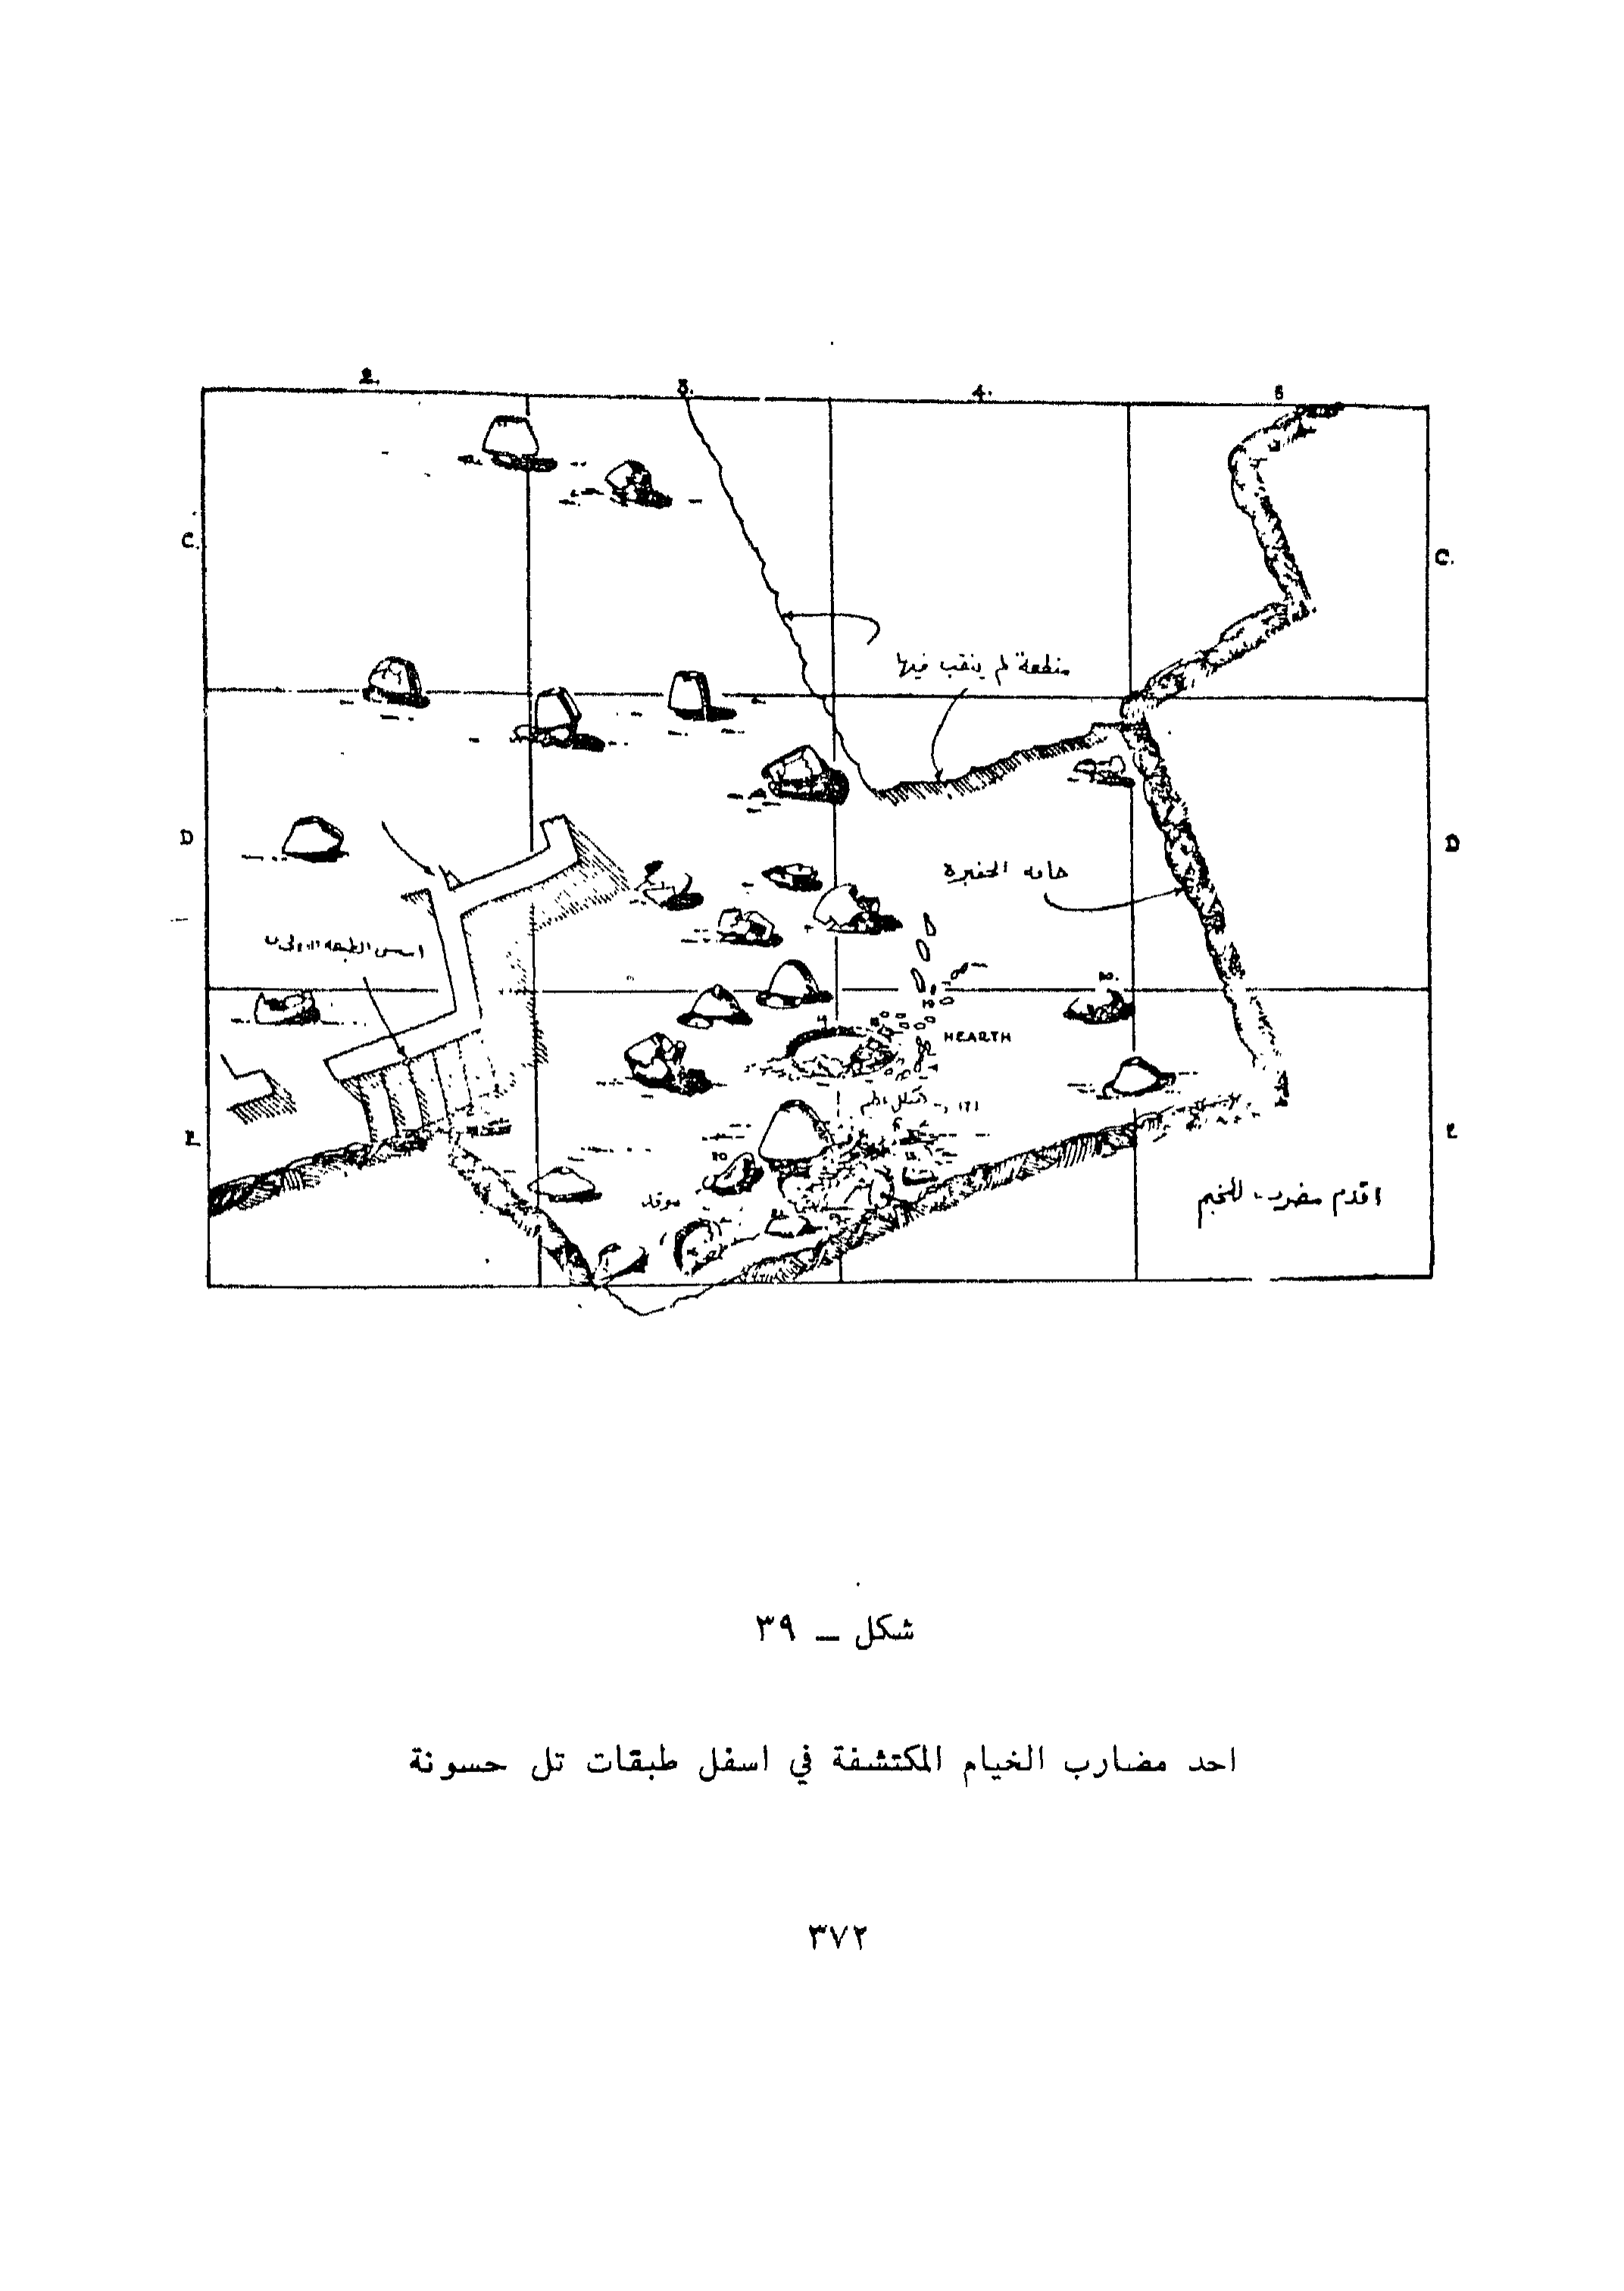 2. 3. 4. 5
C. C.
منطقة لم ينقب فيها
D D
حافة الحفيرة
اسس الطبقة الاولى
HEARTH
E E
موقد
اقدم مضرب للمخيم
شكل – ٣٩
احد مضارب الخيام المكتشفة في اسفل طبقات تل حسونة
٣٧٢